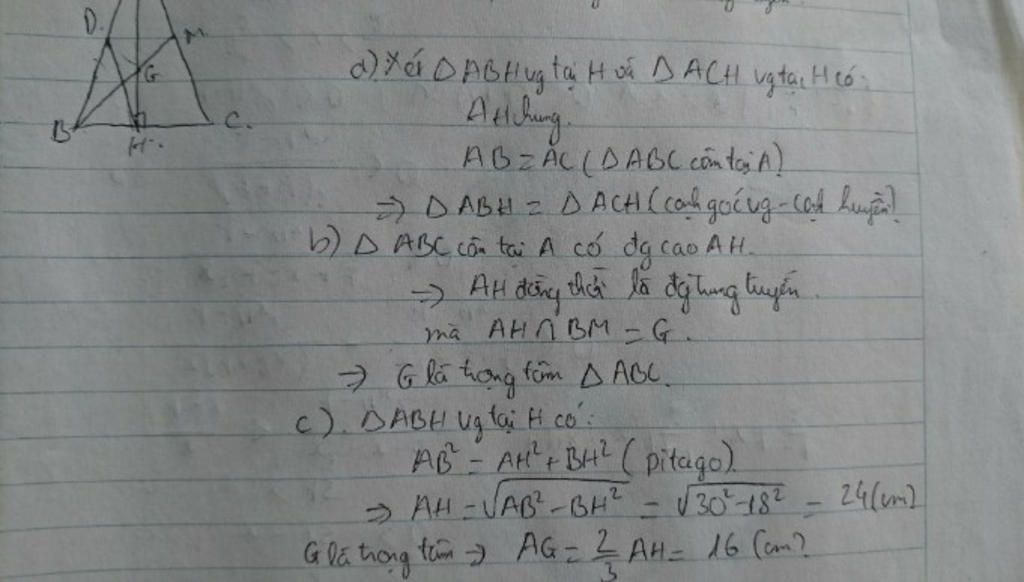 D.
M
G
B
H.
C.
a) Xét Δ ABH vg tại H và Δ ACH vg tại H có:
AH chung.
AB = AC (Δ ABC cân tại A)
=> Δ ABH = Δ ACH (cạnh góc vg - cạnh huyền)
b) Δ ABC cân tại A có đg cao AH.
=> AH đồng thời là đg trung tuyến.
mà AH ∩ BM = G.
=> G là trọng tâm Δ ABC.
c). Δ ABH vg tại H có:
AB² = AH² + BH² (pitago)
=> AH = √AB² - BH² = √30² - 18² = 24 (cm)
G là trọng tâm => AG = 2/3 AH = 16 (cm)